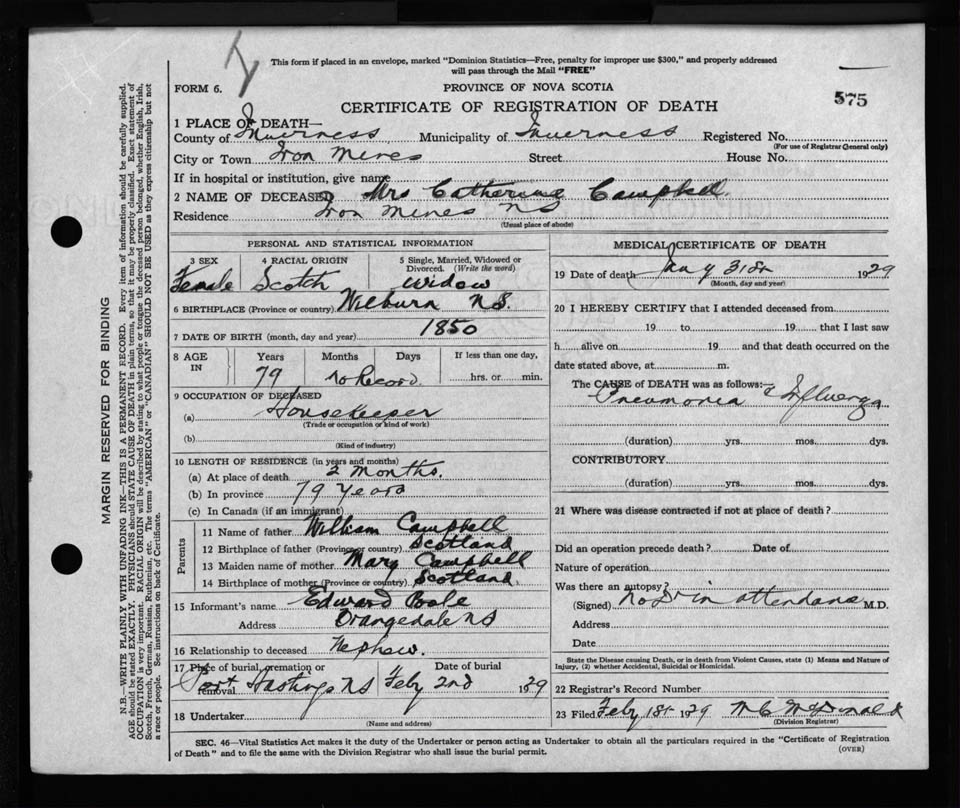 This form if placed in an envelope, marked "Dominion Statistics—Free, penalty for improper use $300," and properly addressed
will pass through the Mail "FREE"
FORM 6.
PROVINCE OF NOVA SCOTIA
CERTIFICATE OF REGISTRATION OF DEATH
575
1 PLACE OF DEATH—
County of Inverness Municipality of Inverness Registered No.
(For use of Registrar General only)
City or Town Iron Mines Street House No.
If in hospital or institution, give name
2 NAME OF DECEASED Mrs Catherine Campbell
Residence Iron Mines NS
(Usual place of abode)
PERSONAL AND STATISTICAL INFORMATION
3 SEX 4 RACIAL ORIGIN 5 Single, Married, Widowed or Divorced. (Write the word)
Female Scotch Widow
6 BIRTHPLACE (Province or country) N.S.
7 DATE OF BIRTH (month, day and year) 1850
8 AGE IN Years Months Days If less than one day,
79 no Record. hrs. or min.
9 OCCUPATION OF DECEASED
(a) Housekeeper
(Trade or occupation or kind of work)
(b)
(Kind of industry)
10 LENGTH OF RESIDENCE (in years and months)
(a) At place of death 2 months.
(b) In province 79 years
(c) In Canada (if an immigrant)
Parents
11 Name of father William Campbell
12 Birthplace of father (Province or country) Scotland
13 Maiden name of mother Mary Campbell
14 Birthplace of mother (Province or country) Scotland
15 Informant's name Edward Poole
Address Orangedale NS
16 Relationship to deceased Nephew.
17 Place of burial, cremation or removal Date of burial
Port Hastings NS Feby 2nd 1929
18 Undertaker
(Name and address)
MEDICAL CERTIFICATE OF DEATH
19 Date of death Jany 31st 1929
(Month, day and year)
20 I HEREBY CERTIFY that I attended deceased from
19 to 19 that I last saw
h alive on 19 and that death occurred on the
date stated above, at m.
The CAUSE of DEATH was as follows:—
Pneumonia & Influenza
(duration) yrs. mos. dys.
CONTRIBUTORY
(duration) yrs. mos. dys.
21 Where was disease contracted if not at place of death?
Did an operation precede death? Date of
Nature of operation
Was there an autopsy?
(Signed) No Dr in attendance M.D.
Address
Date
State the Disease causing Death, or in death from Violent Causes, state (1) Means and Nature of
Injury, (2) whether Accidental, Suicidal or Homicidal.
22 Registrar's Record Number
23 Filed Feby 1st 1929 McDonald
(Division Registrar)
SEC. 46—Vital Statistics Act makes it the duty of the Undertaker or person acting as Undertaker to obtain all the particulars required in the "Certificate of Registration
of Death" and to file the same with the Division Registrar who shall issue the burial permit.
(OVER)
MARGIN RESERVED FOR BINDING
N.B.—WRITE PLAINLY WITH UNFADING INK—THIS IS A PERMANENT RECORD. Every item of information should be carefully supplied.
AGE should be stated EXACTLY. PHYSICIANS should STATE CAUSE OF DEATH in plain terms, so that it may be properly classified. Exact statement of
OCCUPATION is very important. RACIAL ORIGIN will be described by stating to what people or tongue the deceased person belonged, whether English, Irish,
Scotch, French, German, Russian, Ruthenian, etc. The terms "AMERICAN" or "CANADIAN" SHOULD NOT BE USED as they express citizenship but not
a race or people. See instructions on back of Certificate.